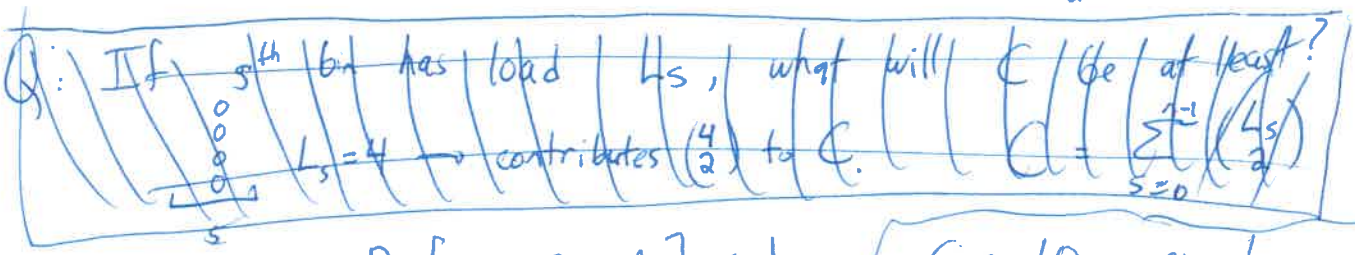 Q: If s^th bin has load L_s, what will C be at least?
L_s = 4 → contributes (4 choose 2) to C. C = Σ_{s=0}^{n-1} (L_s choose 2)
s